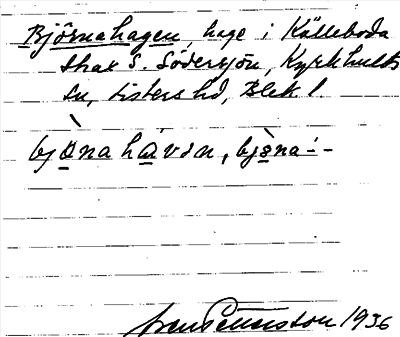 Björnahagen, hage i Källeboda
strax S. Södersjön, Kyrkhults
sn, Listers hd, Blek l.
bjo̲na ha̲vən, bjo̲na-
1936